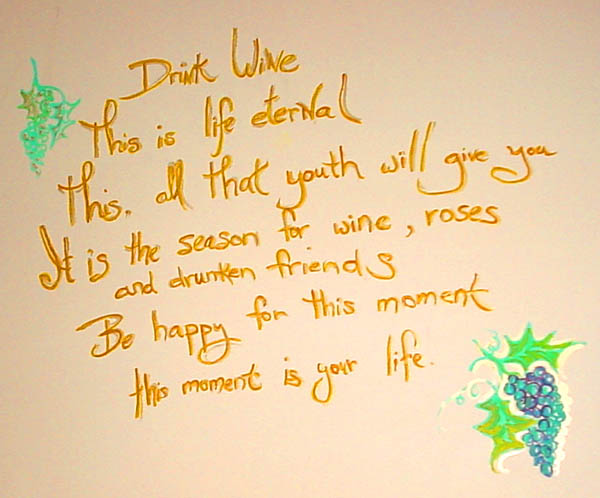 Drink Wine
This is life eternal
This, all that youth will give you
It is the season for wine, roses
and drunken friends
Be happy for this moment
this moment is your life.